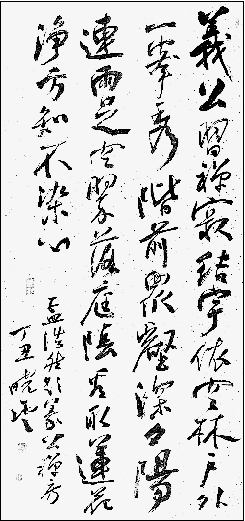 義公習禪寂結宇依空林戶外
一峯秀階前眾壑深夕陽
連雨足空翠落庭陰看取蓮花
淨方知不染心
孟浩然題義公禪房
丁丑